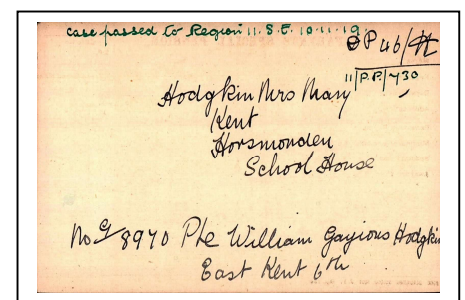 case passed to Region 11. S.E. 10.11.19.
P 46/H
11/P.P./730
Hodgkin Mrs Mary
Kent
Horsmonden
School House
No G/8970 Pte William Gayious Hodgkin
East Kent 6th